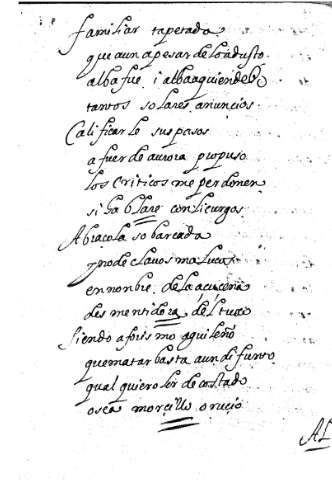 familiar tapetada
que aun a pesar de lo adusto
alba fue i alba a quien debo
tantos solares anuncios
Calificarle sus pasos
a fuer de aurora propuso
los Criticos me perdonen
si hablare con licurgos
Abraçola sobarcada
y no de clavos malucos
en nonbre de la açucena
desmentidora del tuco
siendo aforismo aguileño
que matar basta a un difunto
qual quier olor de costado
o sea morcillo o rucio
AL